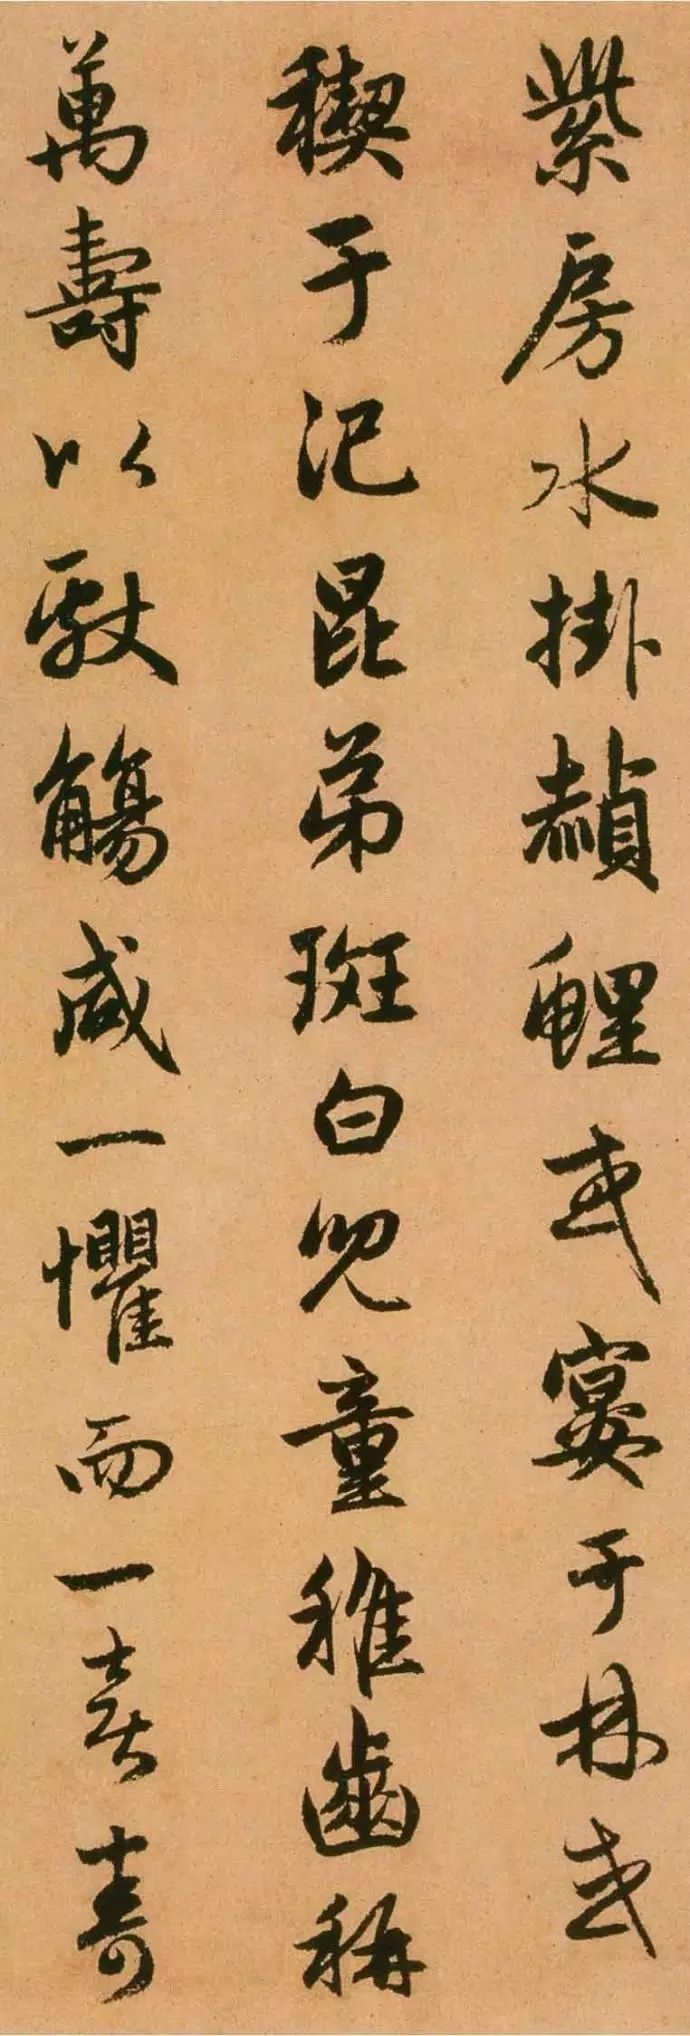 紫房水掛赬鯉或宴于林或
禊于汜昆弟斑白兒童稚齒稱
萬壽以獻觴咸一懼而一喜壽